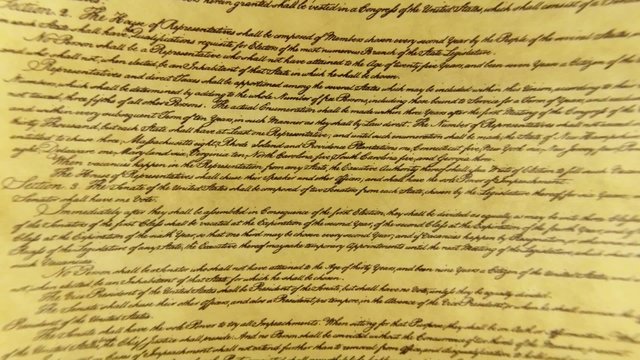 granted shall be vested in a Congress of the United States, which shall consist of a
Section. 2. The House of Representatives shall be composed of Members chosen every second Year by the People of the several States
State shall have Qualifications requisite for Electors of the most numerous Branch of the State Legislature.
No Person shall be a Representative who shall not have attained to the Age of twenty five Years, and been seven Years a Citizen of the
and who shall not, when elected, be an Inhabitant of that State in which he shall be chosen.
Representatives and direct Taxes shall be apportioned among the several States which may be included within this Union, according to their
Numbers, which shall be determined by adding to the whole Number of free Persons, including those bound to Service for a Term of Years, and
not taxed, three fifths of all other Persons. The actual Enumeration shall be made within three Years after the first Meeting of the Congress of the
and within every subsequent Term of ten Years, in such Manner as they shall by Law direct. The Number of Representatives
thirty Thousand, but each State shall have at Least one Representative; and until such enumeration shall be made, the State of New Hampshire
entitled to chuse three, Massachusetts eight, Rhode Island and Providence Plantations one, Connecticut five, New York six, New Jersey four
eight, Delaware one, Maryland six, Virginia ten, North Carolina five, South Carolina five, and Georgia three.
When vacancies happen in the Representation from any State, the Executive Authority thereof shall issue Writs of Election to fill such
The House of Representatives shall chuse their Speaker and other Officers; and shall have the sole Power of Impeachment.
Section. 3. The Senate of the United States shall be composed of two Senators from each State, chosen by the Legislature thereof, for six Years
Senator shall have one Vote.
Immediately after they shall be assembled in Consequence of the first Election, they shall be divided as equally as may be into three Classes
of the Senators of the first Class shall be vacated at the Expiration of the second Year, of the second Class at the Expiration of the fourth Year,
Class at the Expiration of the sixth Year, so that one third may be chosen every second Year; and if Vacancies happen by Resignation,
Recess of the Legislature of any State, the Executive thereof may make temporary Appointments until the next Meeting of the Legislature
such Vacancies.
No Person shall be a Senator who shall not have attained to the Age of thirty Years, and been nine Years a Citizen of the United States
elected, be an Inhabitant of that State for which he shall be chosen.
The Vice President of the United States shall be President of the Senate, but shall have no Vote, unless they be equally divided.
The Senate shall chuse their other Officers, and also a President pro tempore, in the Absence of the Vice President, or when he shall
President of the United States.
The Senate shall have the sole Power to try all Impeachments. When sitting for that Purpose, they shall be on Oath or
the Chief Justice shall preside: And no Person shall be convicted without the Concurrence of two thirds of the
Cases of Impeachment shall not extend further than to removal from Office, and disqualification